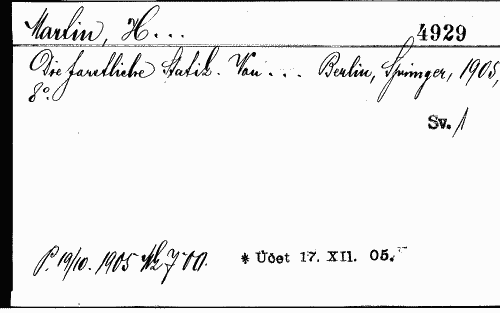 Martin, H... 4929
Die forstliche Statik. Von ... Berlin, Springer, 1905,
8°.
Sv. 1
P. 19/10. 1905 Mk 7·00. * Účet 17. XII. 05.